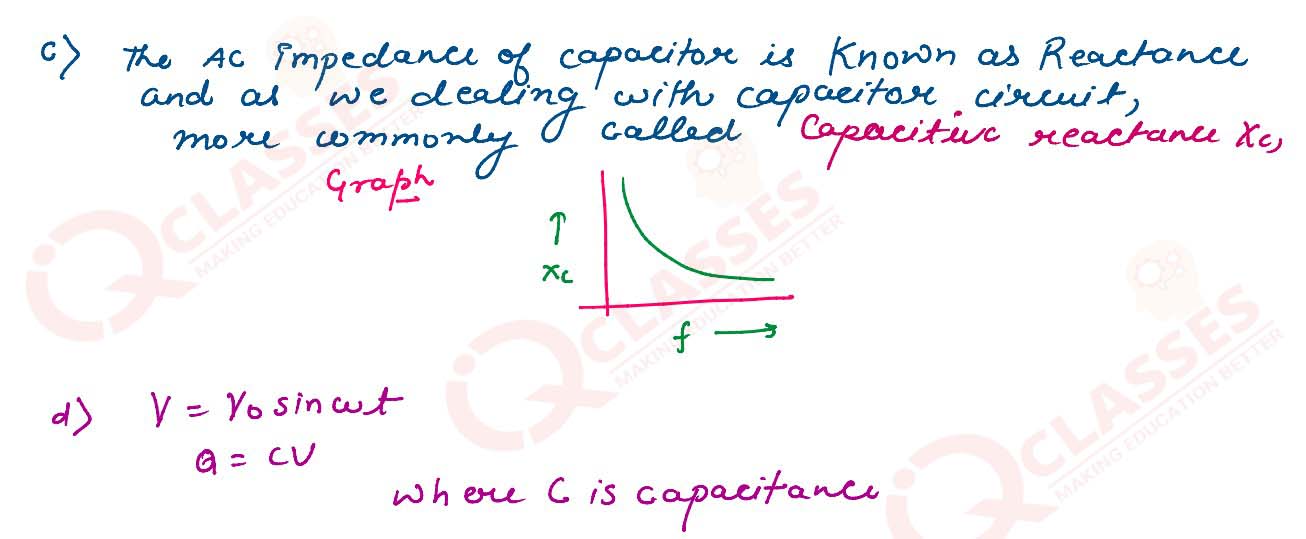 c) The AC impedance of capacitor is Known as Reactance
and as we dealing with capacitor circuit,
more commonly called Capacitive reactance Xc,
Graph
↑
Xc
f →
d) V = V₀ sin ωt
Q = CV
where C is capacitance
CLASSES
MAKING EDUCATION BETTER
CLASSES
MAKING EDUCATION BETTER
CLASSES
MAKING EDUCATION BETTER